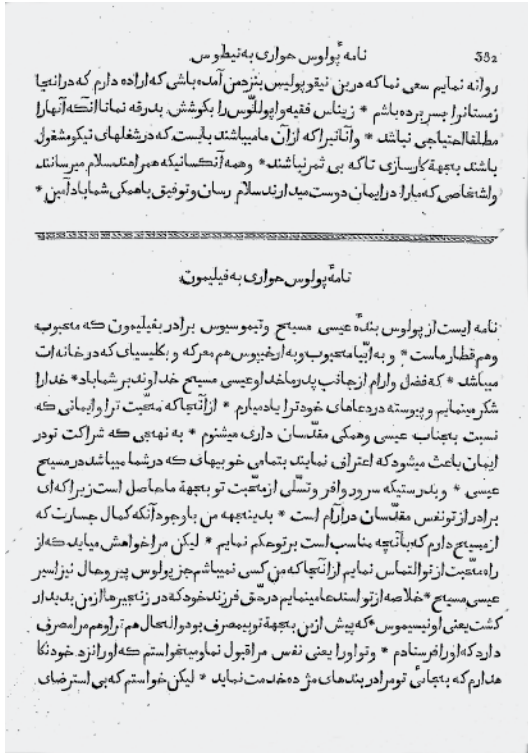 نامه پولوس حواری به تیطوس 382
روانه نمایم سعی نما که در بن نیقوپولیس بنزد من آمده باشی که اراده دارم که در آنجا
زمستانرا بسر برده باشم * زیناس فقیه و اپوللّوس را بکوشش بدرقه نما تا آنکه آنها را
مطلقا احتیاجی نباشد * و آنانیرا که از آن ما میباشند بایست که در شغلهای نیکو مشغول
باشند بجهة کارسازی تا که بی ثمر نباشند * و همه آنکسانیکه همراهند سلام میرسانند
و اشخاصی که ما را در ایمان دوست میدارند سلام رسان و توفیق با همکی شما باد آمین *
نامهٔ پولوس حواری به فیلیمون
نامه ایست از پولوس بندهٔ عیسی مسیح وتیموسیوس برادر بفیلیمون که محبوب
وهم قطار ماست * و به اپّیا محبوب و به ارخپوس هم معرکه و بکلیسیای که در خانه ات
میباشد * که فضل وارام از جانب پدر ما خدا وعیسی مسیح خداوند بر شما باد * خدا را
شکر مینمایم و پیوسته در دعاهای خود ترا یاد میارم * از آنجا که محّبت ترا و ایمانی که
نسبت بجناب عیسی وهمکی مقدّسان داری میشنوم * به نهجی که شراکت تو در
ایمان باعث میشود که اعتراف نمایند بتمامی خوبیهای که در شما میباشد در مسیح
عیسی * و بدرستیکه سرور وافر وتسلّی از محّبت تو بجهة ما حاصل است زیرا که ای
برادر از تو نفس مقدّسان در آرام است * بدینجهه من با وجود آنکه کمال جسارت که
از مسیح دارم که بآنچه مناسب است بر تو حکم نمایم * لیکن مرا خواهش میاید که از
راه محّبت از تو التماس نمایم از آنجا که من کسی نمیباشم جز پولوس پیر وحال نیز اسیر
عیسی مسیح * خلاصه از تو استدعا مینمایم در حقّ فرزند خود که در زنجیرها از من پدیدار
کشت یعنی اونیسیموس * که پیش ازین بجهة تو بیمصرف بود و انحال هم ترا وهم مرا مصرف
دارد که اورا فرستادم * و تو او را یعنی نفس مرا قبول نما و میخواستم که او را نزد خود نکا
هدارم که بجائی تو مرا در بندهای مژده خدمت نماید * لیکن خواستم که بی استرضای